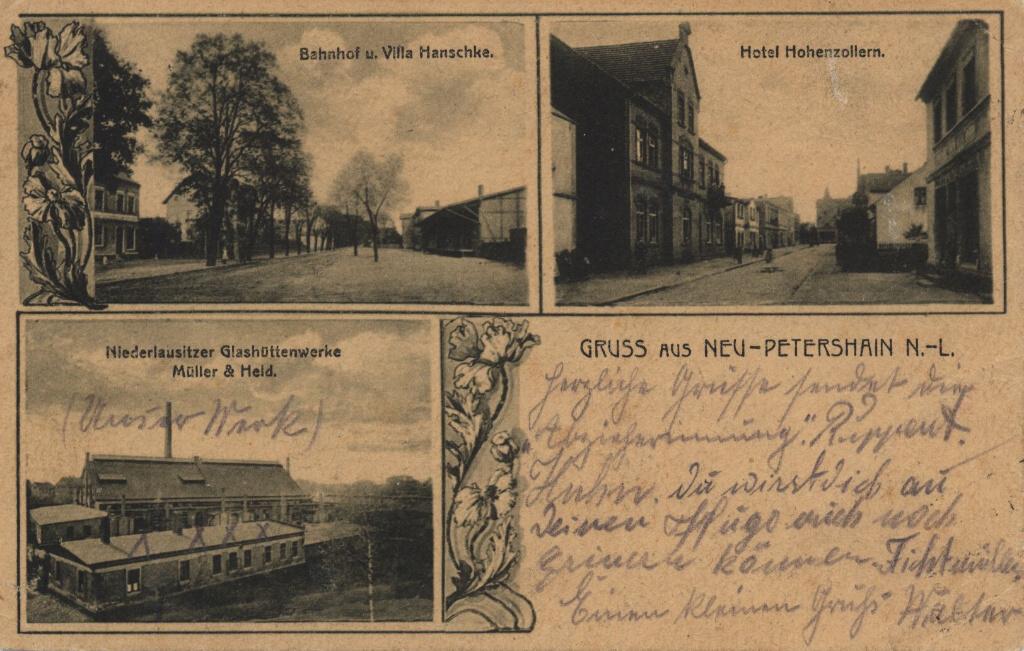 Bahnhof u. Villa Hanschke.
Hotel Hohenzollern.
Niederlausitzer Glashüttenwerke
Müller & Held.
(Unser Werk)
GRUSS AUS NEU-PETERSHAIN N.-L.
Herzliche Grüsse sendet dir
Ruppert.
Huhn. du wirst dich an
Deinen Hugo auch noch
können
Einen kleinen Gruß Walter